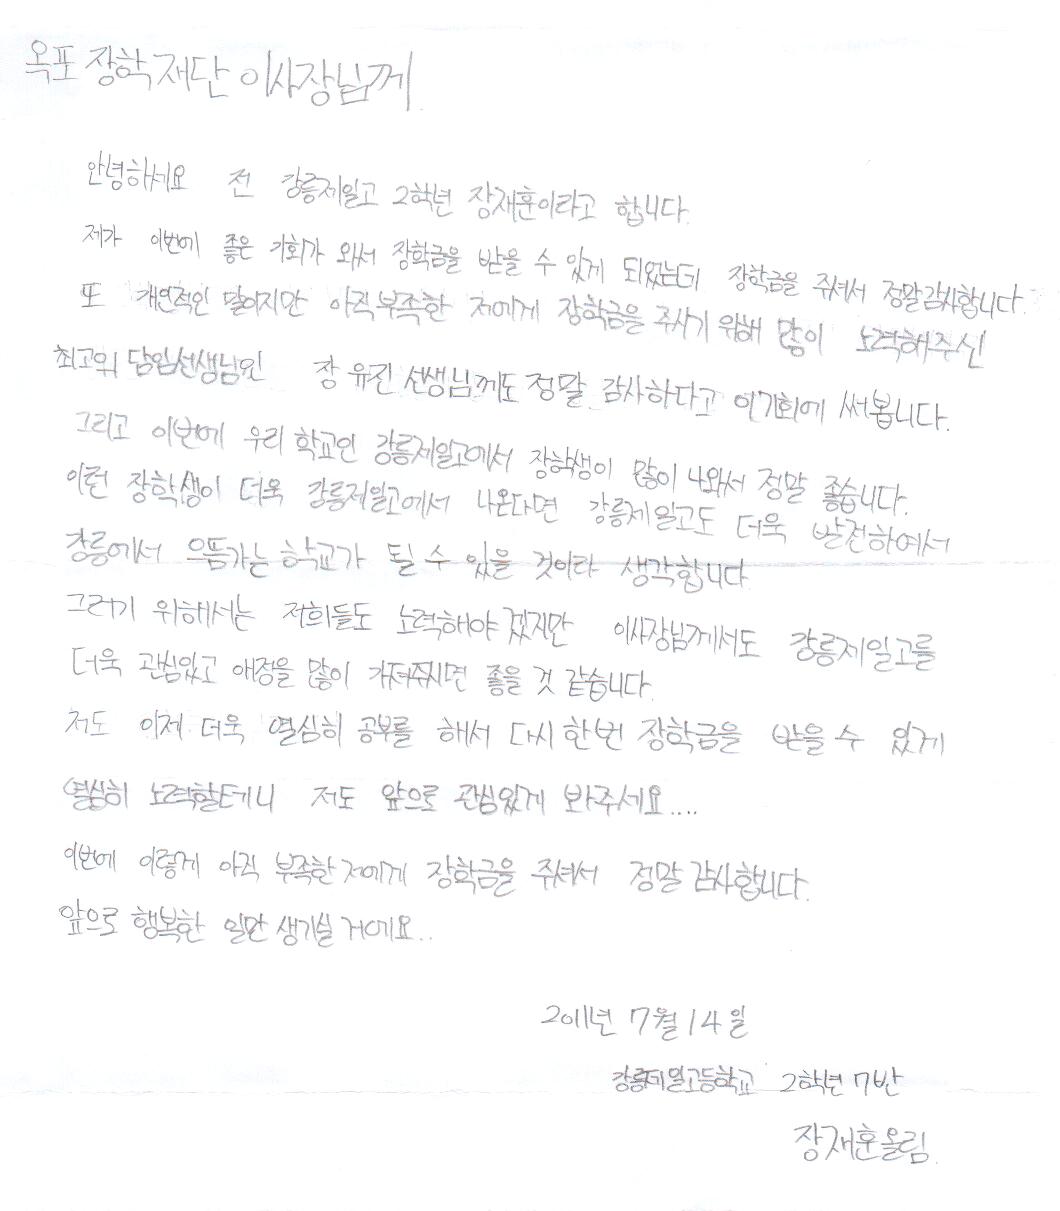 옥포 장학 재단 이사장님께
안녕하세요 전 강릉제일고 2학년 장재훈이라고 합니다.
제가 이번에 좋은 기회가 와서 장학금을 받을 수 있게 되었는데 장학금을 주셔서 정말감사합니다.
또 개인적인 말이지만 아직부족한 저에게 장학금을 주시기 위해 많이 노력해주신
최고의 담임선생님인 장유진선생님께도 정말 감사하다고 이기회에 써봅니다.
그리고 이번에 우리 학교인 강릉제일고에서 장학생이 많이 나와서 정말 좋습니다.
이런 장학생이 더욱 강릉제일고에서 나온다면 강릉제일고도 더욱 발전하에서
강릉에서 으뜸가는 학교가 될 수 있을 것이라 생각합니다
그러기 위해서는 저희들도 노력해야 겠지만 이사장님께서도 강릉제일고를
더욱 관심있고 애정을 많이 가져주시면 좋을 것 같습니다.
저도 이제 더욱 열심히 공부를 해서 다시한번 장학금을 받을 수 있게
열심히 노력할테니 저도 앞으로 관심있게 봐주세요....
이번에 이렇게 아직 부족한 저에게 장학금을 주셔서 정말감사합니다.
앞으로 행복한 일만 생기실 거에요..
2011년 7월 14일
강릉제일고등학교 2학년 7반
장재훈올림.